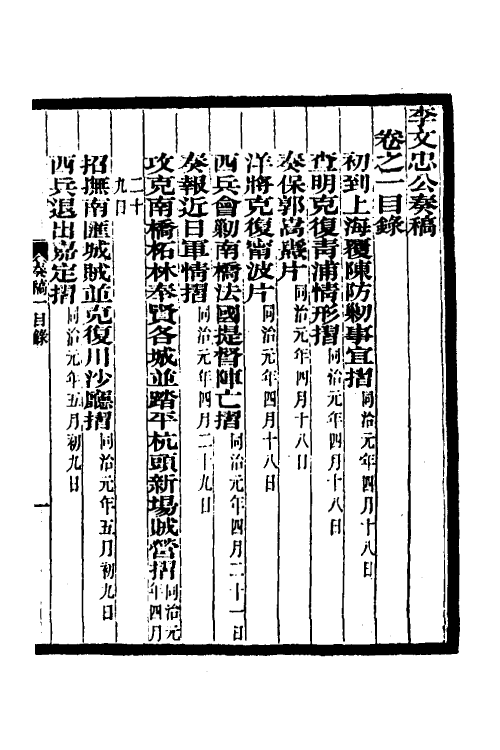 李文忠公奏稿
卷之一目錄
初到上海覆陳防剿事宜摺同治元年四月十八日
查明克復青浦情形摺同治元年四月十八日
奏保郭嵩燾片同治元年四月十八日
洋將克復甯波片同治元年四月十八日
西兵會勦南橋法國提督陣亡摺同治元年四月二十一日
奏報近日軍情摺同治元年四月二十九日
攻克南橋柘林奉賢各城並踏平杭頭新場賊營摺同治元年四月
二十九日
招撫南匯城賊並克復川沙廳摺同治元年五月初九日
西兵退出嘉定摺同治元年五月初九日
奏稿一目錄
一